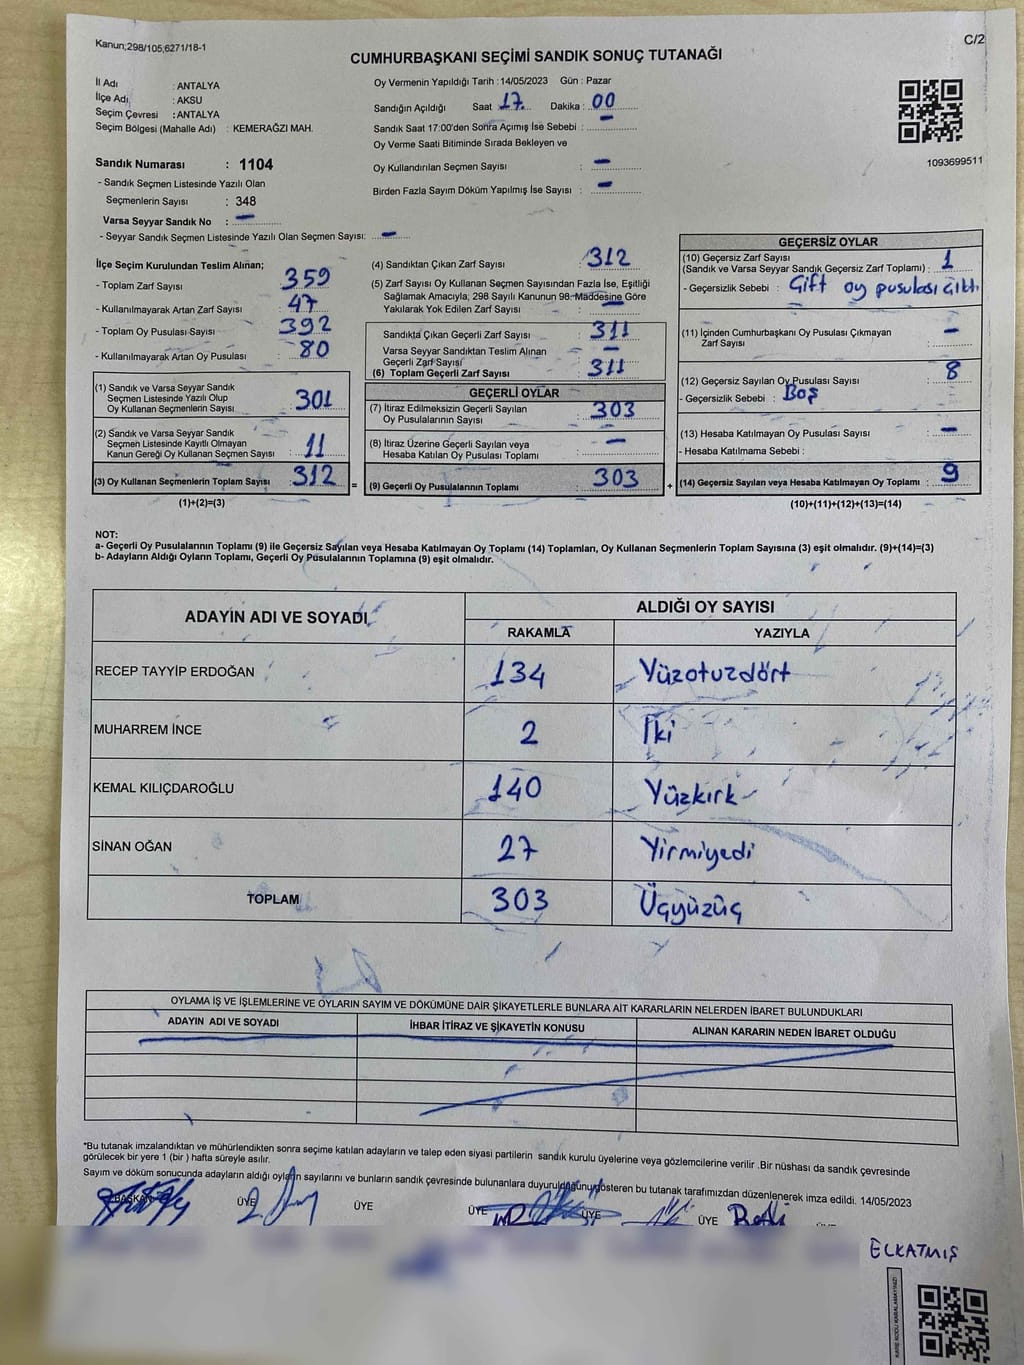 Kanun;298/105,6271/18-1
C/2
CUMHURBAŞKANI SEÇİMİ SANDIK SONUÇ TUTANAĞI
İl Adı : ANTALYA
İlçe Adı : AKSU
Seçim Çevresi : ANTALYA
Seçim Bölgesi (Mahalle Adı) : KEMERAĞZI MAH.
Sandık Numarası : 1104
- Sandık Seçmen Listesinde Yazılı Olan
Seçmenlerin Sayısı : 348
Varsa Seyyar Sandık No : –
- Seyyar Sandık Seçmen Listesinde Yazılı Olan Seçmen Sayısı: –
Oy Vermenin Yapıldığı Tarih : 14/05/2023 Gün : Pazar
Sandığın Açıldığı Saat 17 Dakika : 00
Sandık Saat 17:00'den Sonra Açımış İse Sebebi : –
Oy Verme Saati Bitiminde Sırada Bekleyen ve
Oy Kullandırılan Seçmen Sayısı : –
Birden Fazla Sayım Döküm Yapılmış İse Sayısı : –
1093699511
İlçe Seçim Kurulundan Teslim Alınan;
- Toplam Zarf Sayısı : 359
- Kullanılmayarak Artan Zarf Sayısı : 47
- Toplam Oy Pusulası Sayısı : 392
- Kullanılmayarak Artan Oy Pusulası : 80
(1) Sandık ve Varsa Seyyar Sandık
Seçmen Listesinde Yazılı Olup
Oy Kullanan Seçmenlerin Sayısı : 301
(2) Sandık ve Varsa Seyyar Sandık
Seçmen Listesinde Kayıtlı Olmayan
Kanun Gereği Oy Kullanan Seçmen Sayısı : 11
(3) Oy Kullanan Seçmenlerin Toplam Sayısı : 312
(1)+(2)=(3)
(4) Sandıktan Çıkan Zarf Sayısı : 312
(5) Zarf Sayısı Oy Kullanan Seçmen Sayısından Fazla İse, Eşitliği
Sağlamak Amacıyla; 298 Sayılı Kanunun 98. Maddesine Göre
Yakılarak Yok Edilen Zarf Sayısı : –
Sandıkta Çıkan Geçerli Zarf Sayısı : 311
Varsa Seyyar Sandıktan Teslim Alınan
Geçerli Zarf Sayısı : –
(6) Toplam Geçerli Zarf Sayısı : 311
GEÇERLİ OYLAR
(7) İtiraz Edilmeksizin Geçerli Sayılan
Oy Pusulalarının Sayısı : 303
(8) İtiraz Üzerine Geçerli Sayılan veya
Hesaba Katılan Oy Pusulası Toplamı : –
= (9) Geçerli Oy Pusulalarının Toplamı : 303 +
GEÇERSİZ OYLAR
(10) Geçersiz Zarf Sayısı
(Sandık ve Varsa Seyyar Sandık Geçersiz Zarf Toplamı) : 1
- Geçersizlik Sebebi : Çift oy pusulası çıktı
(11) İçinden Cumhurbaşkanı Oy Pusulası Çıkmayan
Zarf Sayısı : –
(12) Geçersiz Sayılan Oy Pusulası Sayısı : 8
- Geçersizlik Sebebi : Boş
(13) Hesaba Katılmayan Oy Pusulası Sayısı : –
- Hesaba Katılmama Sebebi :
(14) Geçersiz Sayılan veya Hesaba Katılmayan Oy Toplamı : 9
(10)+(11)+(12)+(13)=(14)
NOT:
a- Geçerli Oy Pusulalarının Toplamı (9) ile Geçersiz Sayılan veya Hesaba Katılmayan Oy Toplamı (14) Toplamları, Oy Kullanan Seçmenlerin Toplam Sayısına (3) eşit olmalıdır. (9)+(14)=(3)
b- Adayların Aldığı Oyların Toplamı, Geçerli Oy Pusulalarının Toplamına (9) eşit olmalıdır.
ADAYIN ADI VE SOYADI ALDIĞI OY SAYISI
RAKAMLA YAZIYLA
RECEP TAYYİP ERDOĞAN 134 Yüzotuzdört
MUHARREM İNCE 2 İki
KEMAL KILIÇDAROĞLU 140 Yüzkırk
SİNAN OĞAN 27 Yirmiyedi
TOPLAM 303 Üçyüzüç
OYLAMA İŞ VE İŞLEMLERİNE VE OYLARIN SAYIM VE DÖKÜMÜNE DAİR ŞİKAYETLERLE BUNLARA AİT KARARLARIN NELERDEN İBARET BULUNDUKLARI
ADAYIN ADI VE SOYADI İHBAR İTİRAZ VE ŞİKAYETİN KONUSU ALINAN KARARIN NEDEN İBARET OLDUĞU
*Bu tutanak imzalandıktan ve mühürlendikten sonra seçime katılan adayların ve talep eden siyasi partilerin sandık kurulu üyelerine veya gözlemcilerine verilir .Bir nüshası da sandık çevresinde
görülecek bir yere 1 (bir ) hafta süreyle asılır.
Sayım ve döküm sonucunda adayların aldığı oyların sayılarını ve bunların sandık çevresinde bulunanlara duyurulduğunu gösteren bu tutanak tarafımızdan düzenlenerek imza edildi. 14/05/2023
BAŞKAN ÜYE ÜYE ÜYE ÜYE ÜYE
ELKATMIŞ